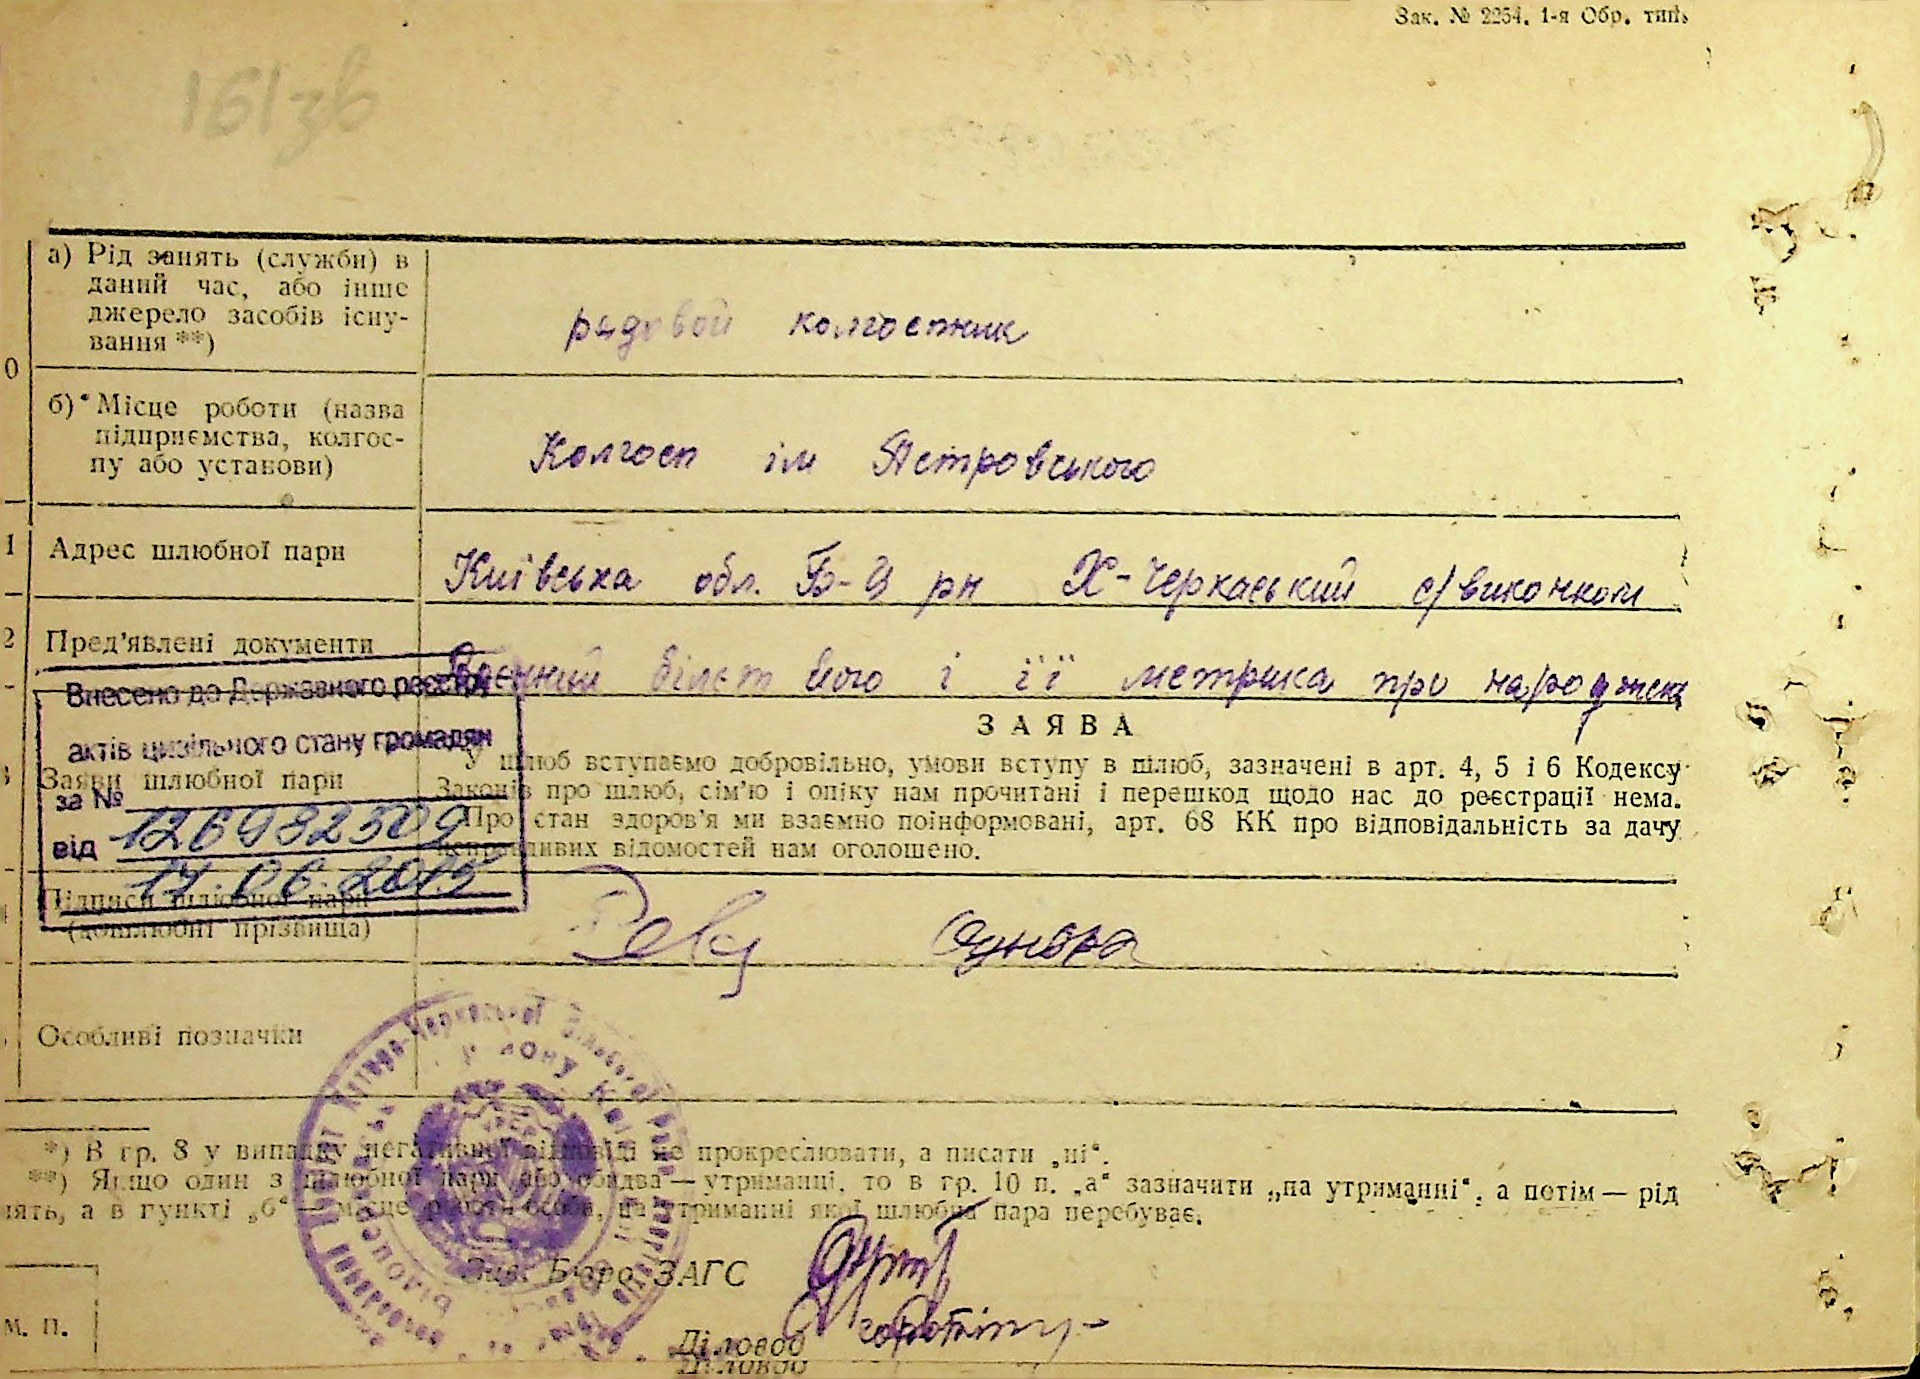 Зак. № 2254. 1-я Обр. тип.
161зв
а) Рід занять (служби) в
даний час, або інше
джерело засобів існу-
вання **)
рядовой колгоспник
0
б) Місце роботи (назва
підприємства, колгос-
пу або установи)
Колгосп ім
1
Адрес шлюбної пари
Київська обл. Б-Ц рн Х-Черкаський с/виконком
2
Пред’явлені документи
Воєнний білєт його і її метрика про народжен
Внесено до Державного реєстру
актів цивільного стану громадян
за № 126982509
від 17.06.2015
ЗАЯВА
Заяви шлюбної пари
У шлюб вступаємо добровільно, умови вступу в шлюб, зазначені в арт. 4, 5 і 6 Кодексу
Законів про шлюб, сім’ю і опіку нам прочитані і перешкод щодо нас до реєстрації нема.
Про стан здоров’я ми взаємно поінформовані, арт. 68 КК про відповідальність за дачу
неправдивих відомостей нам оголошено.
Підписи шлюбної пари
(дошлюбні прізвища)
Особливі позначки
*) В гр. 8 у випадку негативної відповіді не прокреслювати, а писати „ні“.
**) Якщо один з шлюбної пари або обидва — утриманці, то в гр. 10 п. „а“ зазначити „на утриманні“, а потім — рід
нять, а в пункті „б“ — місце роботи особи, на утриманні якої шлюбна пара перебуває.
Зав. Бюро ЗАГС
М. П.
Діловод
Діловод